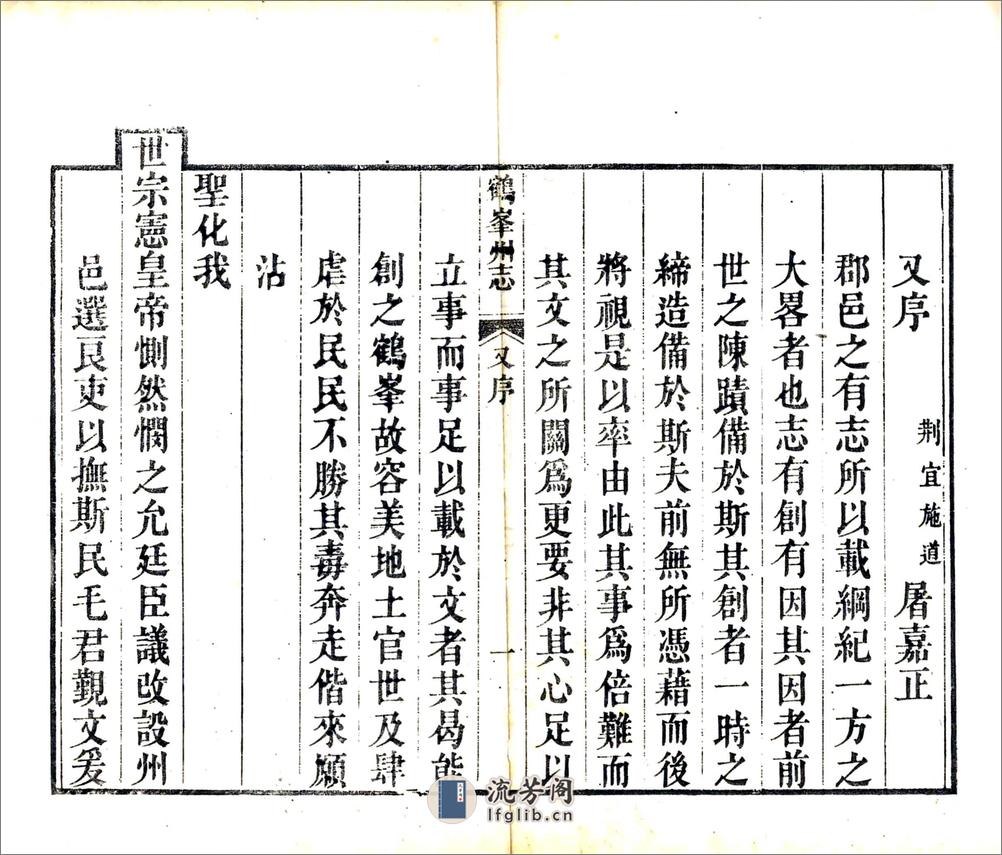 又序 荆宜施道 屠嘉正
郡邑之有志所以載綱紀一方之
大畧者也志有創有因其因者前
世之陳蹟備於斯其創者一時之
締造備於斯夫前無所憑藉而後
將視是以率由此其事爲倍難而
其文之所關爲更要非其心足以
鶴峯州志 又序 一
立事而事足以載於文者其曷能
創之鶴峯故容美地土官世及肆
虐於民民不勝其毒奔走偕來願
沾
聖化我
世宗憲皇帝惻然憫之允廷臣議改設州
邑選良吏以撫斯民毛君觐文爰
流芳阁
lfglib.cn